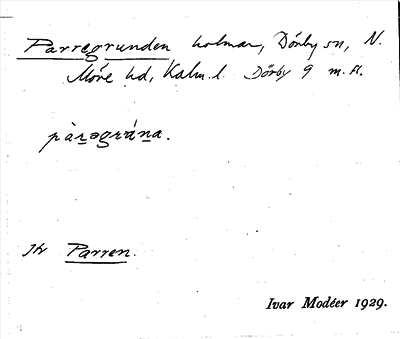 Parregrunden holmar, Dörby sn, N.
Möre hd, Kalm. l. Dörby 9 m. fl.
pàrəgrána.
Jfr Parren.
Ivar Modéer 1929.